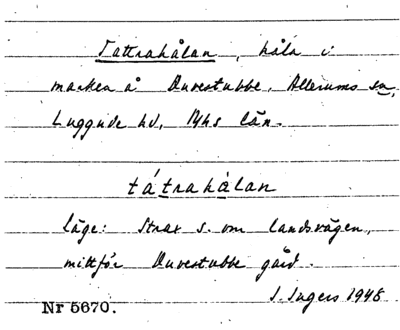 Tattrahålan, håla i
marken å Duvestubbe, Allerums sn,
Luggude hd, Mhs län.
tátrahålan
läge: Strax s. om landsvägen,
mittför Duvestubbe gård.
I. Ingers 1945
Nr 5670.